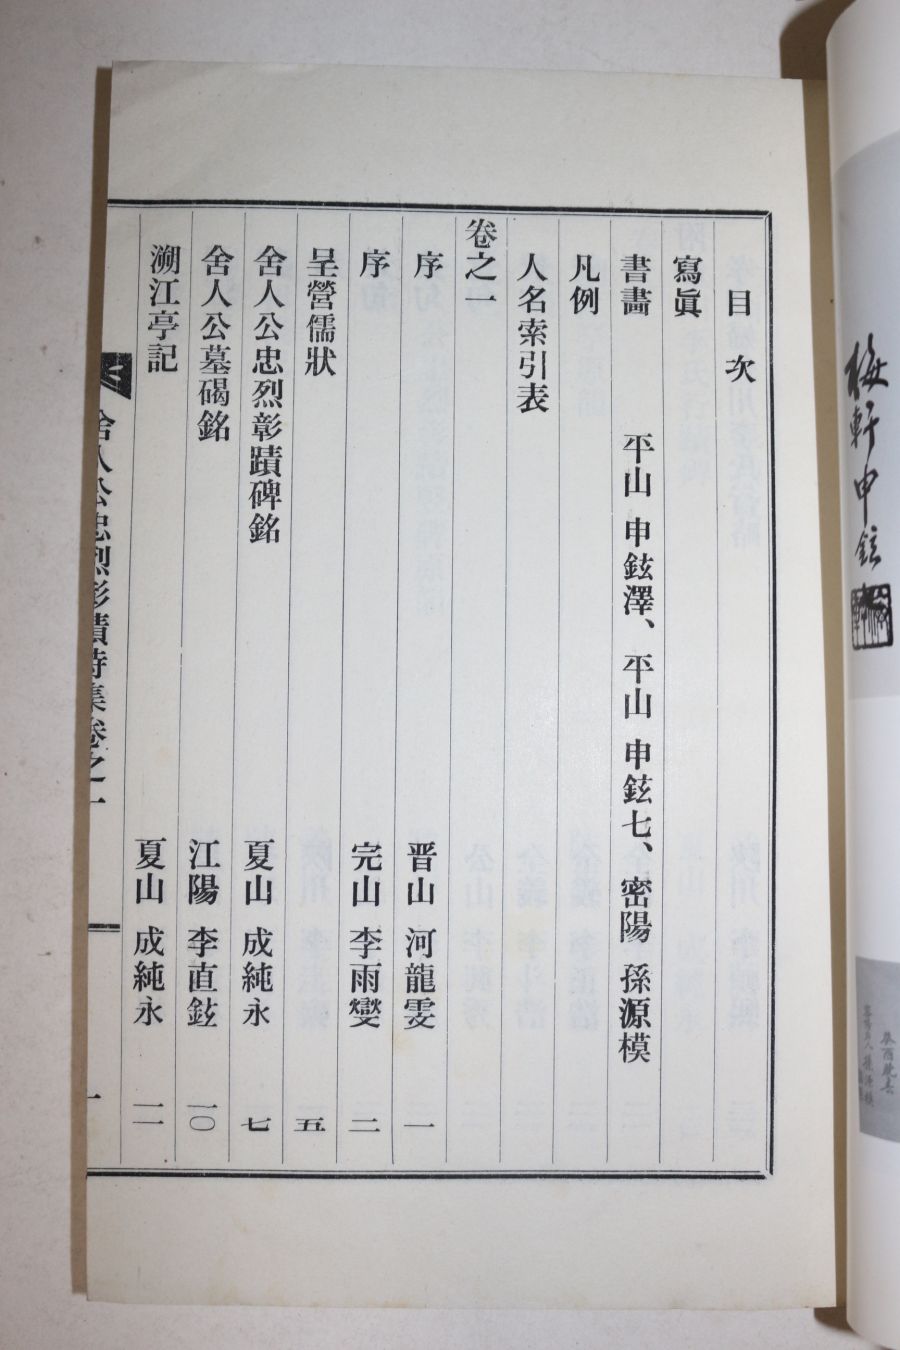 梅軒申鉉
目次
寫眞
書畵 平山 申鉉澤、平山 申鉉七、密陽 孫源模
凡例
人名索引表
卷之一
序 晋山 河龍雯 一
序 完山 李雨燮 二
呈營儒狀 五
舍人公忠烈彰蹟碑銘 夏山 成純永 七
舍人公墓碣銘 江陽 李直鉉 一〇
溯江亭記 夏山 成純永 一一
舍人公忠烈彰蹟詩集卷之一
一